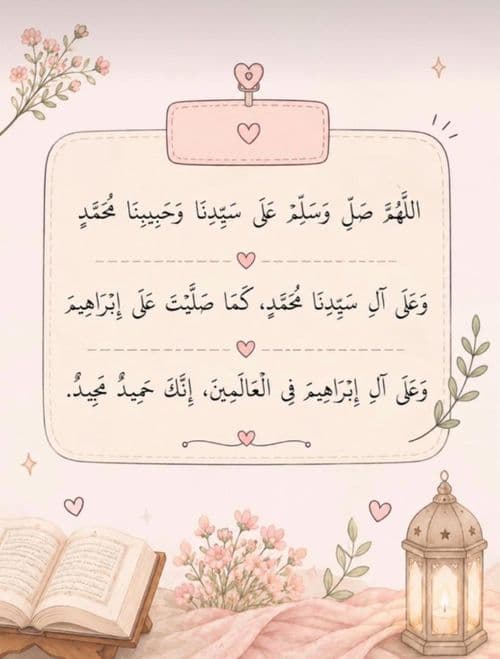 اللَّهُمَّ صَلِّ وَسَلِّمْ عَلَى سَيِّدِنَا وَحَبِيبِنَا مُحَمَّدٍ
وَعَلَى آلِ سَيِّدِنَا مُحَمَّدٍ، كَمَا صَلَّيْتَ عَلَى إِبْرَاهِيمَ
وَعَلَى آلِ إِبْرَاهِيمَ فِي الْعَالَمِينَ، إِنَّكَ حَمِيدٌ مَجِيدٌ.